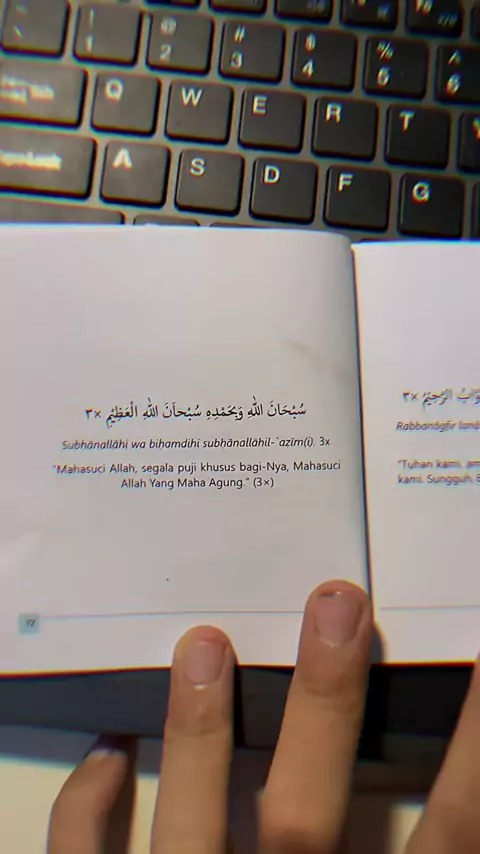 ! 1
@ 2
# 3
$ 4
% 5
^ 6
Q W E R T
A S D F G
سُبْحَانَ اللهِ وَبِحَمْدِهِ سُبْحاَنَ اللهِ الْعَظِيْمِ ×٣
Subḥānallāhi wa biḥamdihi subḥānallāhil-`aẓīm(i). 3x
"Mahasuci Allah, segala puji khusus bagi-Nya, Mahasuci
Allah Yang Maha Agung." (3×)
الرَّحِيْمُ ×٣
"Tuhan kami,
kami. Sungguh,